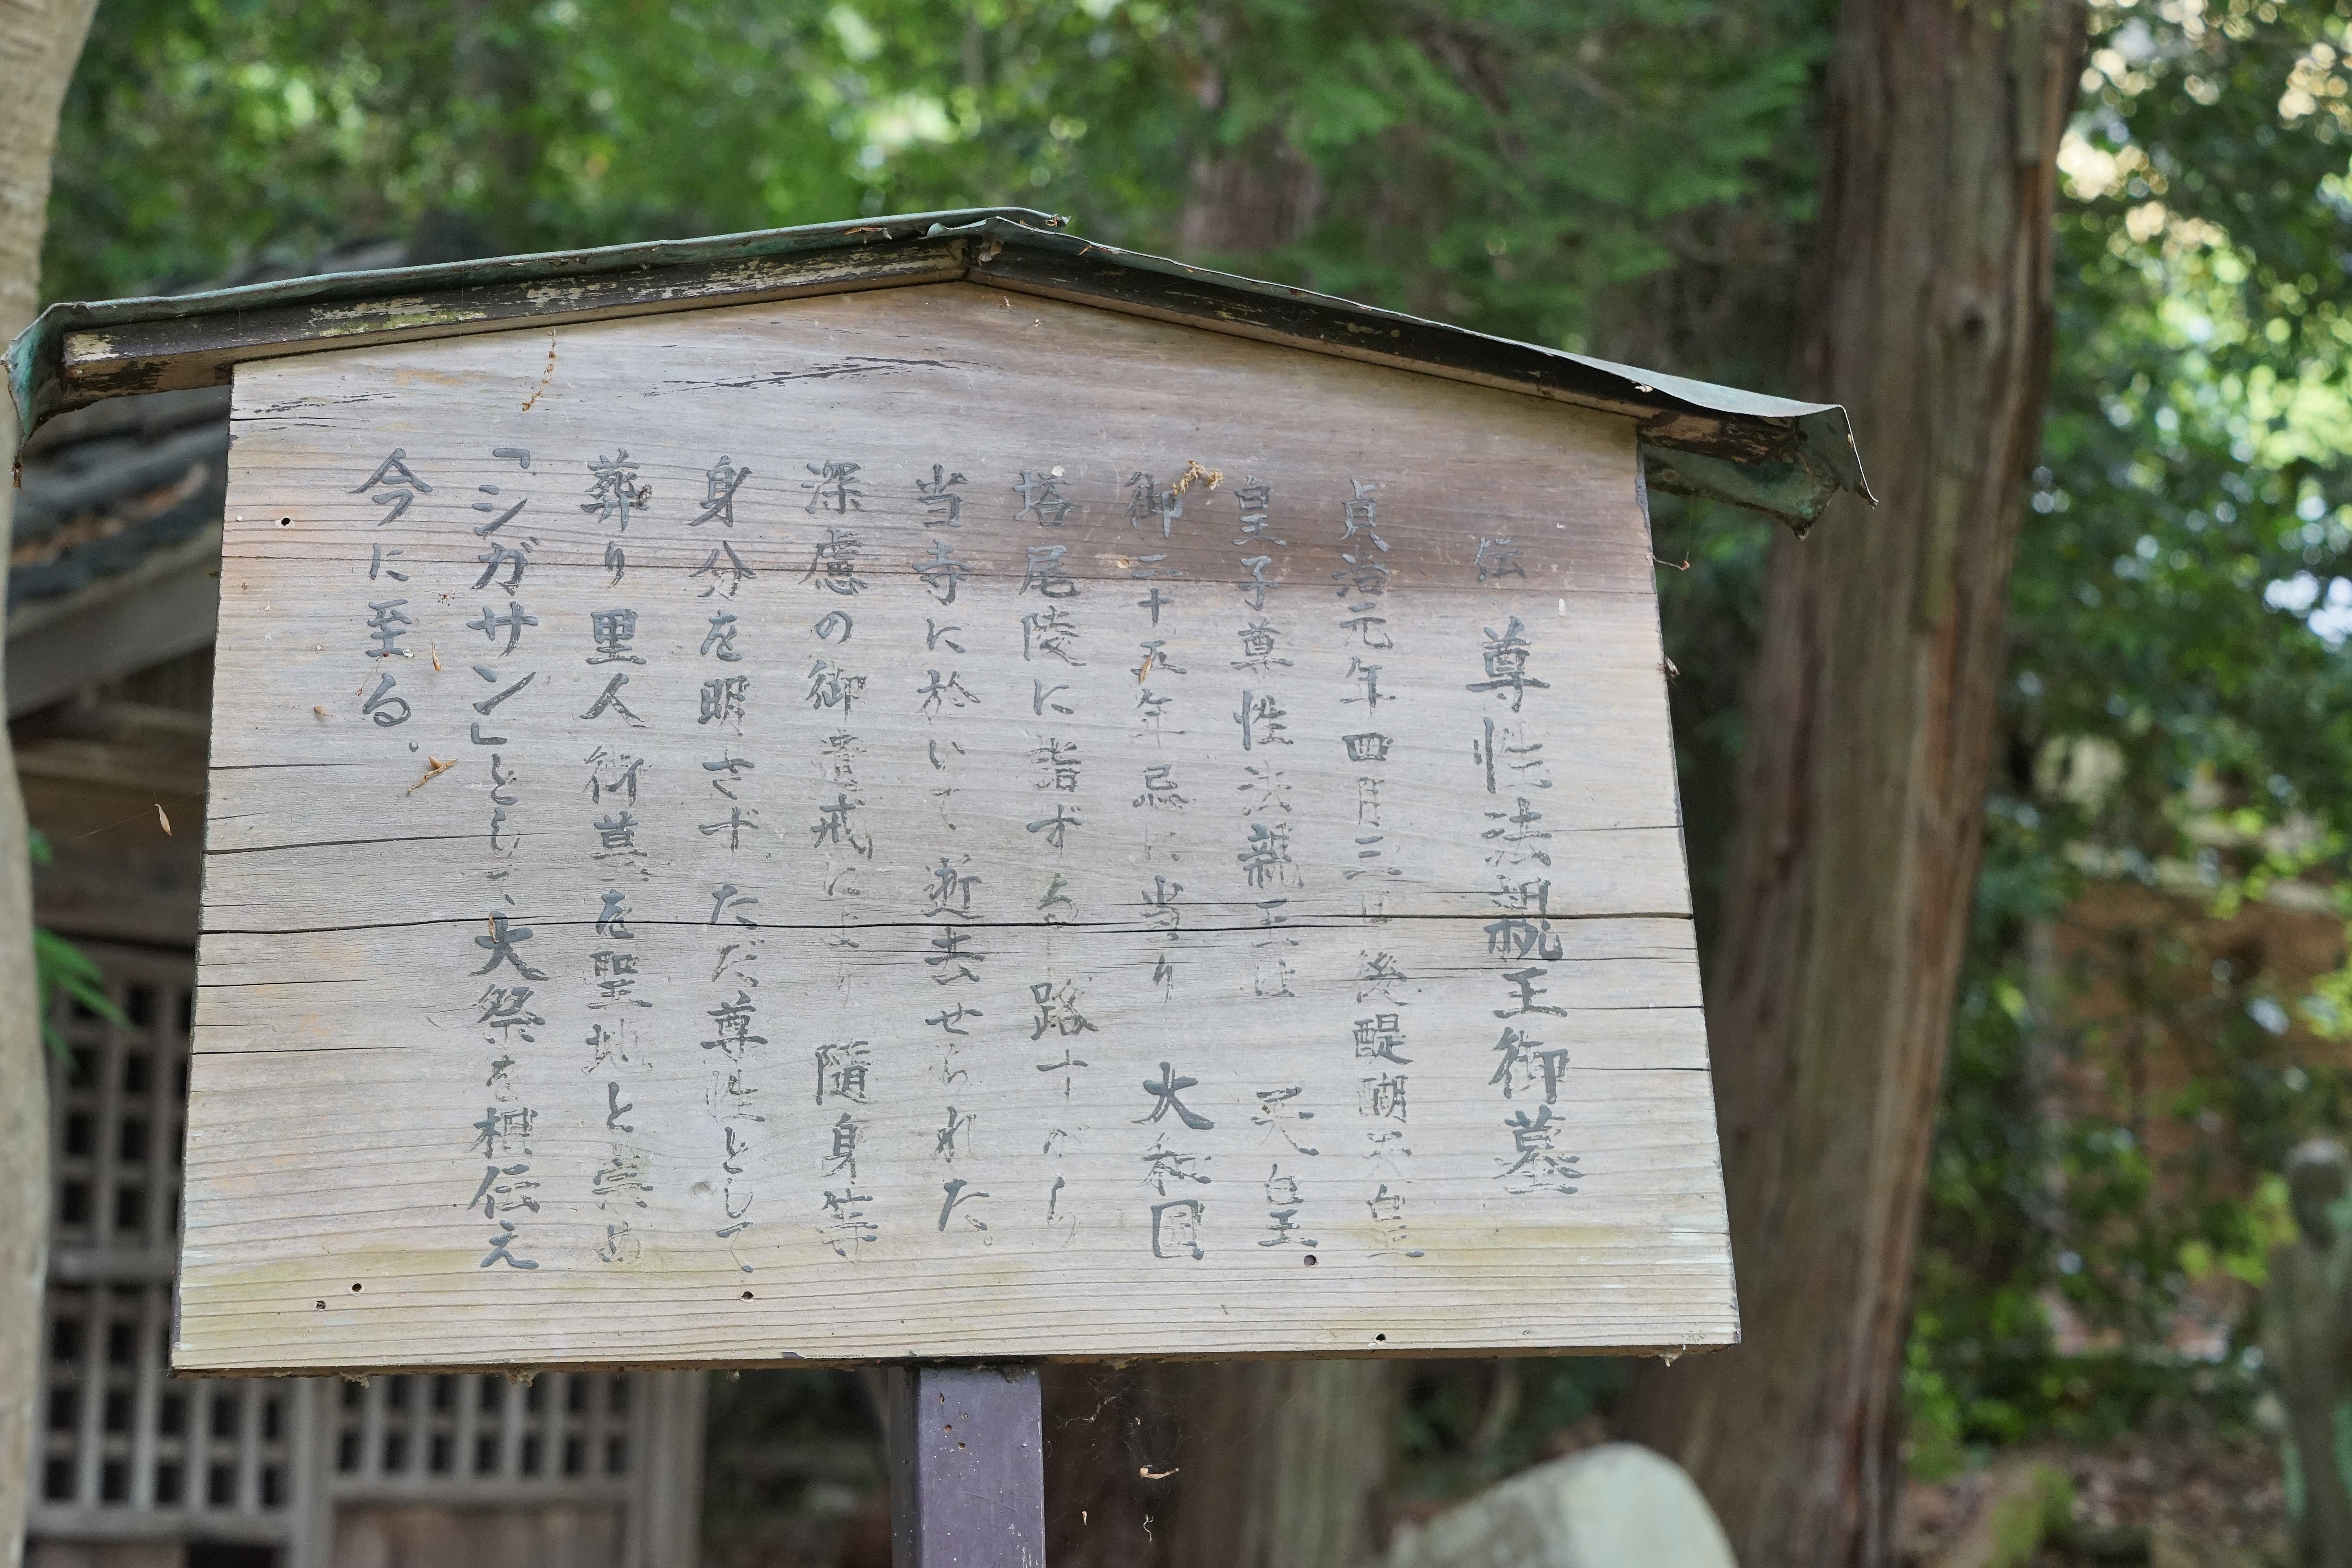 伝 尊性法親王御墓
貞治元年四月三日 後醍醐天皇
皇子尊性法親王は 天皇
御二十五年忌に当り 大和国
塔尾陵に詣ずる 路すがら
当寺に於いて 逝去せられた。
深慮の御遺戒により 随身等
身分を明さず ただ尊性として
葬り里人御墓を聖地と崇め
「シガサン」として、大祭を相伝え
今に至る。